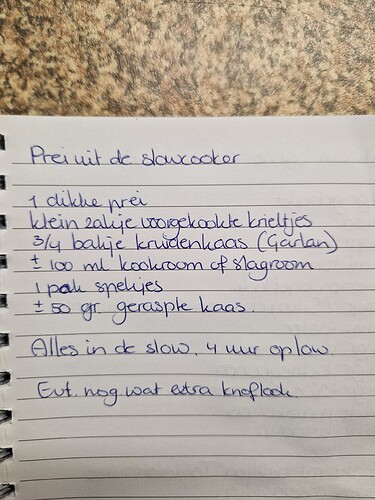 Prei uit de slowcooker
1 dikke prei
klein zakje voorgekookte krieltjes
3/4 bakje kruidenkaas (Garlan)
± 100 ml kookroom of slagroom
1 pak spekjes
± 50 gr. geraspte kaas.
Alles in de slow. 4 uur op low.
Evt. nog wat extra knoflook.